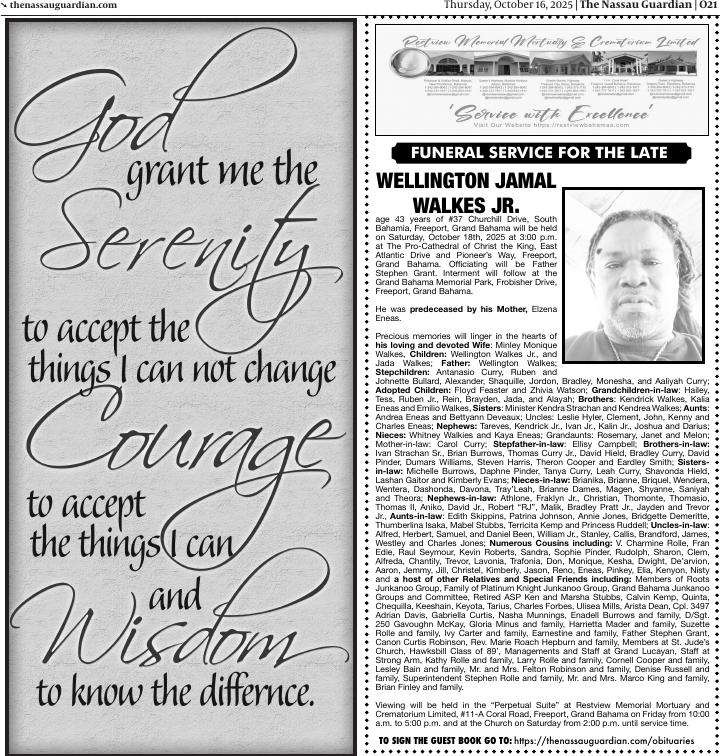 thenassauguardian.com
Thursday, October 16, 2025 | The Nassau Guardian | O21
God
grant me the
Serenity
to accept the
things I can not change
Courage
to accept
the things I can
and
Wisdom
to know the differnce.
Restview Memorial Mortuary & Crematorium Limited
'Service with Excellence'
Visit Our Website https://restviewbahamas.com
FUNERAL SERVICE FOR THE LATE
WELLINGTON JAMAL
WALKES JR.
age 43 years of #37 Churchill Drive, South
Bahamia, Freeport, Grand Bahama will be held
on Saturday, October 18th, 2025 at 3:00 p.m.
at The Pro-Cathedral of Christ the King, East
Atlantic Drive and Pioneer's Way, Freeport,
Grand Bahama. Officiating will be Father
Stephen Grant. Interment will follow at the
Grand Bahama Memorial Park, Frobisher Drive,
Freeport, Grand Bahama.
He was predeceased by his Mother, Elzena
Eneas.
Precious memories will linger in the hearts of
his loving and devoted Wife: Minley Monique
Walkes, Children: Wellington Walkes Jr., and
Jada Walkes; Father: Wellington Walkes;
Stepchildren: Antanasio Curry, Ruben and
Johnette Bullard, Alexander, Shaquille, Jordon, Bradley, Monesha, and Aaliyah Curry;
Adopted Children: Floyd Feaster and Zhivia Watson; Grandchildren-in-law: Hailey,
Tess, Ruben Jr., Rein, Brayden, Jada, and Alayah; Brothers: Kendrick Walkes, Kalia
Eneas and Emilio Walkes, Sisters: Minister Kendra Strachan and Kendrea Walkes; Aunts:
Andrea Eneas and Bettyann Deveaux; Uncles: Leslie Hyler, Clement, John, Kenny and
Charles Eneas; Nephews: Tareves, Kendrick Jr., Ivan Jr., Kalin Jr., Joshua and Darius;
Nieces: Whitney Walkes and Kaya Eneas; Grandaunts: Rosemary, Janet and Melon;
Mother-in-law: Carol Curry; Stepfather-in-law: Ellisy Campbell; Brothers-in-law:
Ivan Strachan Sr., Brian Burrows, Thomas Curry Jr., David Hield, Bradley Curry, David
Pinder, Dumars Williams, Steven Harris, Theron Cooper and Eardley Smith; Sisters-
in-law: Michelle Burrows, Daphne Pinder, Tanya Curry, Leah Curry, Shavonda Hield,
Lashan Gaitor and Kimberly Evans; Nieces-in-law: Brianika, Brianne, Briquel, Wendera,
Wentera, Dashonda, Davona, Tray'Leah, Brianne Dames, Magen, Shyanne, Saniyah
and Theora; Nephews-in-law: Athlone, Fraklyn Jr., Christian, Thomonte, Thomasio,
Thomas II, Aniko, David Jr., Robert "RJ", Malik, Bradley Pratt Jr., Jayden and Trevor
Jr., Aunts-in-law: Edith Skippins, Patrina Johnson, Annie Jones, Bridgette Demeritte,
Thumberlina Isaka, Mabel Stubbs, Terricita Kemp and Princess Ruddell; Uncles-in-law:
Alfred, Herbert, Samuel, and Daniel Been, William Jr., Stanley, Callis, Brandford, James,
Westley and Charles Jones; Numerous Cousins including: V. Charmine Rolle, Fran
Edie, Raul Seymour, Kevin Roberts, Sandra, Sophie Pinder, Rudolph, Sharon, Clem,
Alfreda, Chantily, Trevor, Lavonia, Trafonia, Don, Monique, Kesha, Dwight, De'arvion,
Aaron, Jemmy, Jill, Christel, Kimberly, Jason, Reno, Eneas, Pinkey, Elia, Kenyon, Nisty
and a host of other Relatives and Special Friends including: Members of Roots
Junkanoo Group, Family of Platinum Knight Junkanoo Group, Grand Bahama Junkanoo
Groups and Committee, Retired ASP Ken and Marsha Stubbs, Calvin Kemp, Quinta,
Chequilla, Keeshain, Keyota, Tarius, Charles Forbes, Ulisea Mills, Arista Dean, Cpl. 3497
Adrian Davis, Gabriella Curtis, Nasha Munnings, Enadell Burrows and family, D/Sgt.
250 Gavoughn McKay, Gloria Minus and family, Harrietta Mader and family, Suzette
Rolle and family, Ivy Carter and family, Earnestine and family, Father Stephen Grant,
Canon Curtis Robinson, Rev. Marie Roach Hepburn and family, Members at St. Jude's
Church, Hawksbill Class of 89', Managements and Staff at Grand Lucayan, Staff at
Strong Arm, Kathy Rolle and family, Larry Rolle and family, Cornell Cooper and family,
Lesley Bain and family, Mr. and Mrs. Felton Robinson and family, Denise Russell and
family, Superintendent Stephen Rolle and family, Mr. and Mrs. Marco King and family,
Brian Finley and family.
Viewing will be held in the "Perpetual Suite" at Restview Memorial Mortuary and
Crematorium Limited, #11-A Coral Road, Freeport, Grand Bahama on Friday from 10:00
a.m. to 5:00 p.m. and at the Church on Saturday from 2:00 p.m. until service time.
TO SIGN THE GUEST BOOK GO TO: https://thenassauguardian.com/obituaries